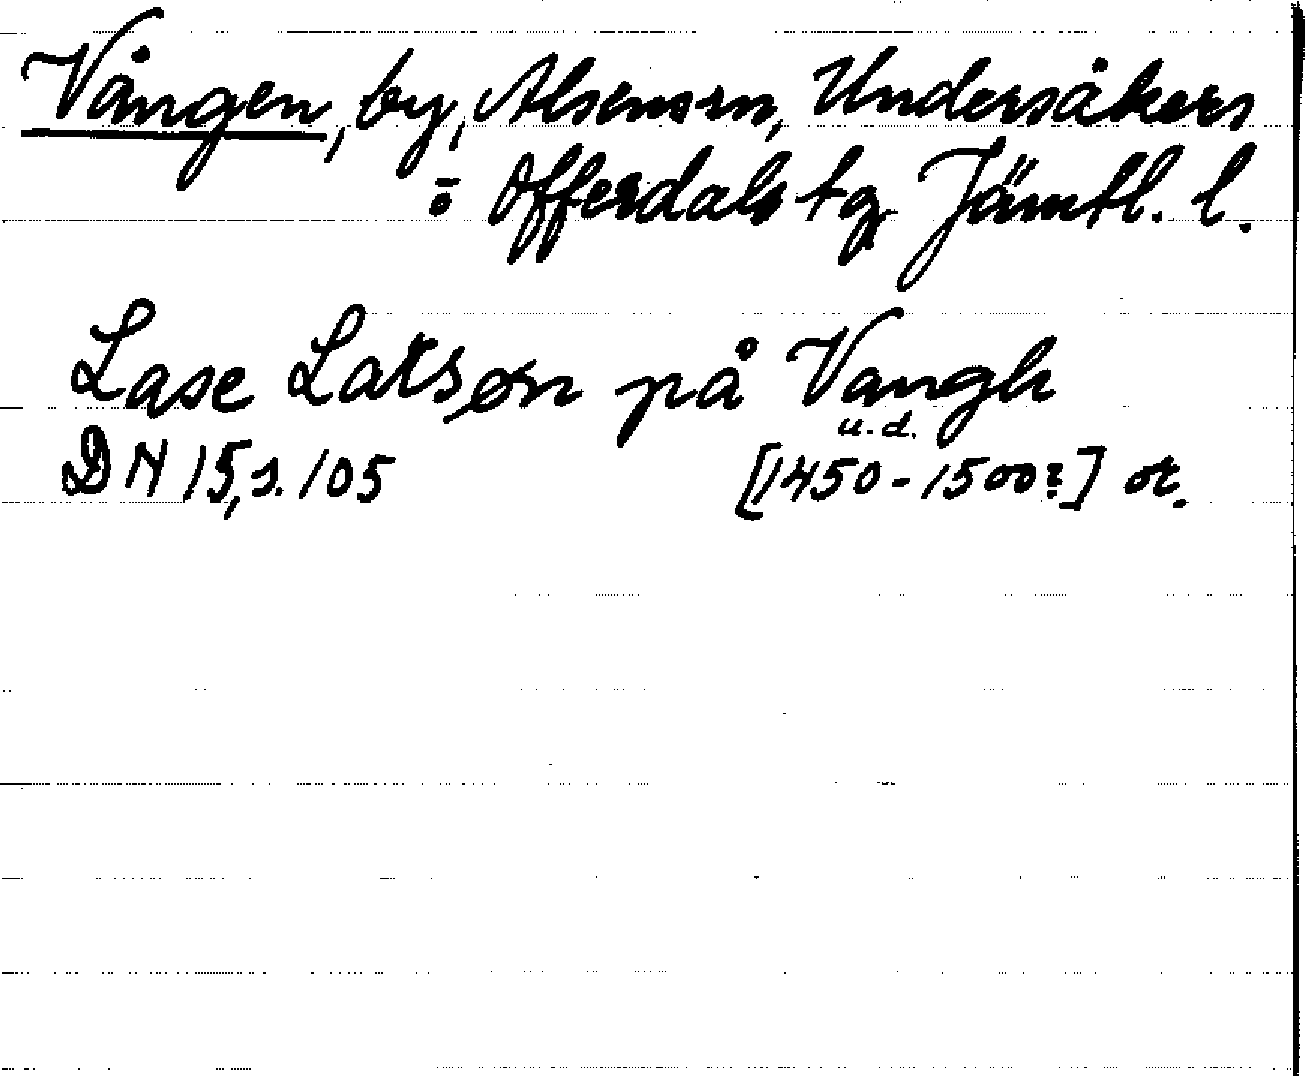 Vången, by, Alsens sn, Undersåkers
o Offerdals tg Jämtl. l.
Lase Latsøn på Vangh
u.d.
DN 15, s. 105 [1450-1500?] or.